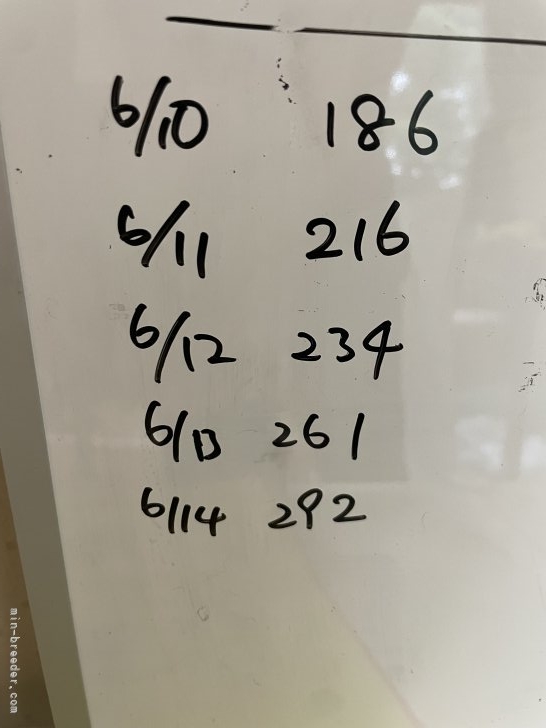 6/10 186
6/11 216
6/12 234
6/13 261
6/14 292
min-breeder.com